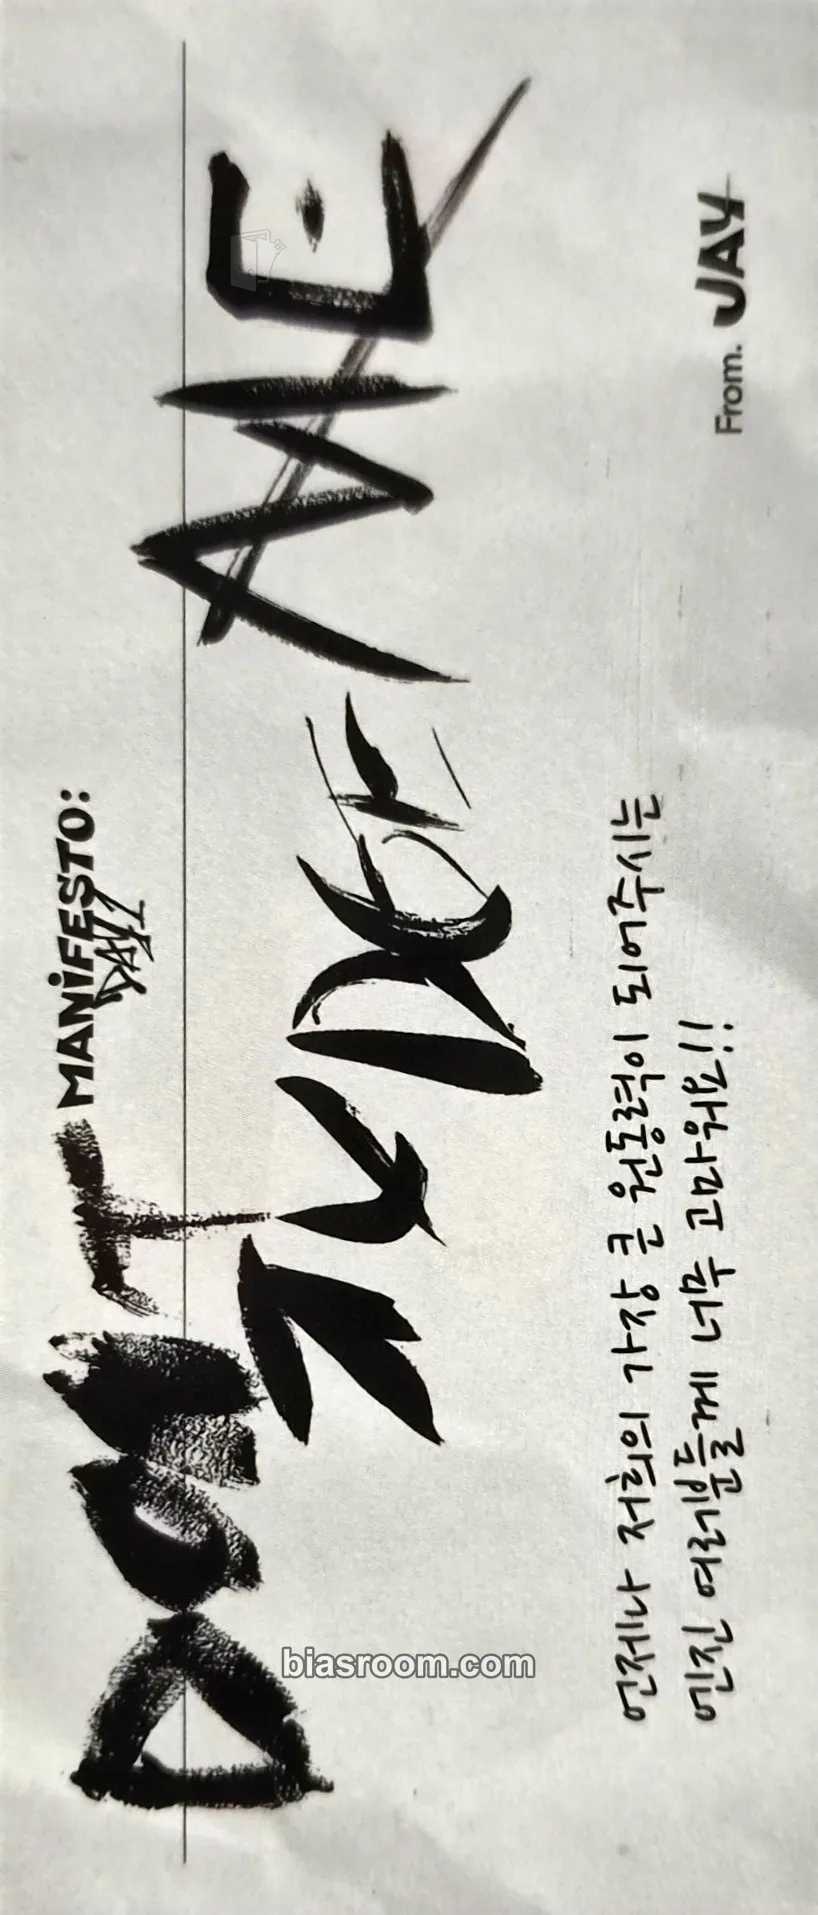 MANiFESTO:
DAY 1
DON'T
JUDGE
ME
언제나 저희의 가장 큰 원동력이 되어주시는
엔진 여러분들께 너무 고마워요!!
From. JAY
biasroom.com